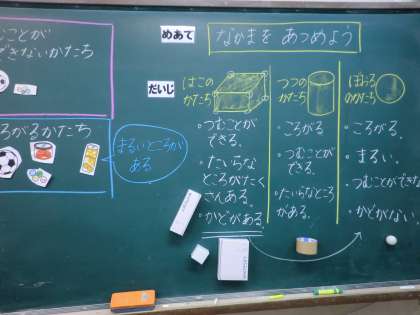 めあて
なかまを あつめよう
ことが
できないかたち
ろがるかたち
まるいところが
ある
だいじ
はこの
かたち
・つむことが
できる。
・たいらな
ところがたく
さんある。
・かどがある。
つつの
かたち
・ころがる。
・つむことが
できる。
・たいらなところ
がある。
ぼおる
のかたち
・ころがる。
・まるい。
・つむことができな
・かどがない。